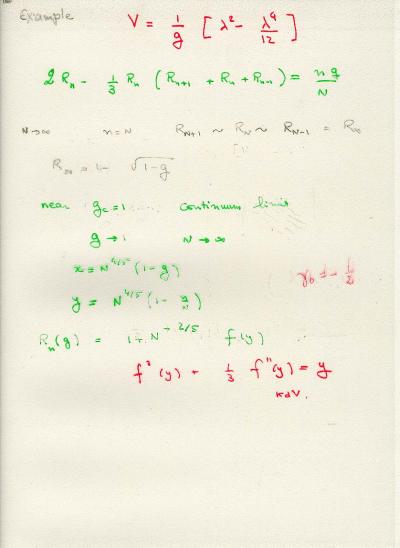 Example V = 1/g [ λ² - λ⁴/12 ]
2 Rₙ - 1/3 Rₙ ( Rₙ₊₁ + Rₙ + Rₙ₋₁ ) = n g / N
N→∞ n = N R_{N+1} ~ R_N ~ R_{N-1} = R_∞
R_∞ = 1 - √(1-g)
near g_c = 1 continuum limit
g → 1 N → ∞
x = N^{4/5} (1 - g)
y = N^{4/5} (1 - )
Rₙ(g) = 1 + N^{-2/5} f(y)
f²(y) + 1/3 f''(y) = y
KdV.